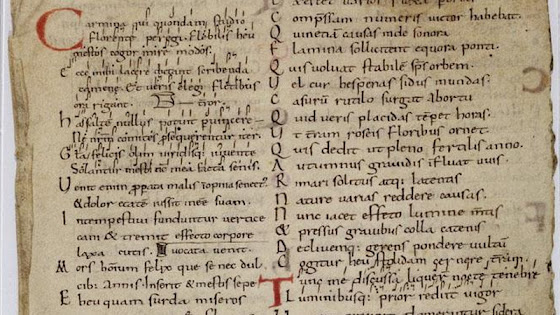 Carmina qui quondam studio
Florente peregi. Flebilis heu
mestos cogor inire modos.
Ecce mihi lacere dictant scribenda
camene. Et veris elegi fletibus
ora rigant.
Has saltem nullus potuit pvincere
Ne nrm comites psequerentur iter.
Gla felicis olim viridisq; iuvente
Solantur mesti nc mea facta senis.
Venit enim pperata malis inopina senect
& dolor etate iussit inee suam.
Intempestivi funduntur vertice
cani & tremit effecto corpore
laxa cutis. vocata venit.
Mors hominum felix que se nec dul
cib; annis. Inserit & mestis sepe
Eheu quam surda miseros
Comp̃ssam numeris victor habebat.
Quin etiã causas unde sonora
Flamina sollicitent equora ponti.
Quis volvat stabilẽ sp̃s orbem.
Vel cur hesperias sidus in undas.
Casurũ rutilo surgit abortu
Quid veris placidas tẽpet horas.
Ut terram roseis floribus ornet.
Quis dedit ut pleno fertilis anno.
Autumnus gravidis ĩfluat uvis.
Rimari solitus atq; latentis
Nature varias reddere causas.
Nunc iacet effeto lumine mtis
& pressus gravibus colla catenis
Declivemq; gerens pondere vultũ
Cogitur heu stolidam cernere terrã.
Tunc me discussa liquer nocte tenebre
Luminibusq; prior rediit vigor